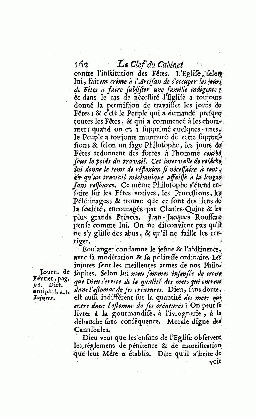 162 La Clef du Cabinet
contre l'institution des Fêtes. L'Eglise, selon
lui, fait un crime à l'Artisan de s'occuper les jours
de Fêtes à faire subsister une famille indigente;
& dans le cas de nécessité l'Eglise a toujours
donné la permission de travailler les jours de
Fêtes; & c'est le Peuple qui a demandé presque
toutes les Fêtes, & qui a commencé à les chom-
mer; quand on en a supprimé quelques-unes,
le Peuple a toujours murmuré de cette suppres-
sion: & selon un sage Philosophe, les jours de
Fêtes redonnent des forces à l'homme courbé
sous le poids du travail. Cet intervalle de relâche
lui donne le tems de réflexion si nécessaire à tout,
& qu'un travail méchanique affaisse à la longue
sans ressource. Ce même Philosophe s'étend en-
suite sur les Fêtes votives, les Processions, les
Pélérinages; & trouve que ce sont des liens de
la société, encouragés par Charles-Quint & les
plus grands Princes. Jean-Jacques Rousseau
pense comme lui. On ne disconvient pas qu'il
ne s'y glisse des abus, & qu'il ne faille les cor-
riger.
Boulanger condamne le jeûne & l'abstinence,
avec sa modération & sa politesse ordinaire. Les
injures sont les meilleures armes de nos Philo-
sophes. Selon lui nous sommes insensés de croire
que Dieu s'irrite de la qualité des mets qui entrent
dans l'estomac de ses créatures. Dieu, sans doute,
est aussi indifférent sur la quantité des mets qui
entre dans l'estomac de ses créatures: On peut se
livrer à la gourmandise, à l'ivrognerie, à la
débauche sans conséquence. Morale digne des
Cannibales.
Dieu veut que les enfans de l'Eglise observent
les réglemens de pénitence & de mortification
que leur Mére a établis. Dire qu'il s'irrite de
voir
Journ. de
Février, pag.
92. Dict.
antiphil. art.
Jeûnes.